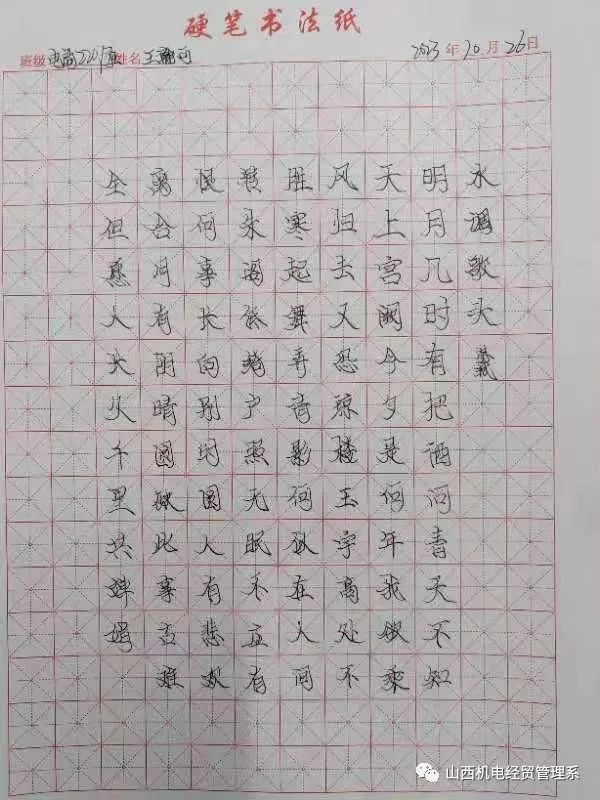 硬笔书法纸
班级 电商 姓名 王
2023年10月26日
水调歌头 苏轼
明月几时有把酒问青天不知
天上宫阙今夕是何年我欲乘
风归去又恐琼楼玉宇高处不
胜寒起舞弄清影何似在人间
转朱阁低绮户照无眠不应有
恨何事长向别时圆人有悲欢
离合月有阴晴圆缺此事古难
全但愿人长久千里共婵娟
山西机电经贸管理系